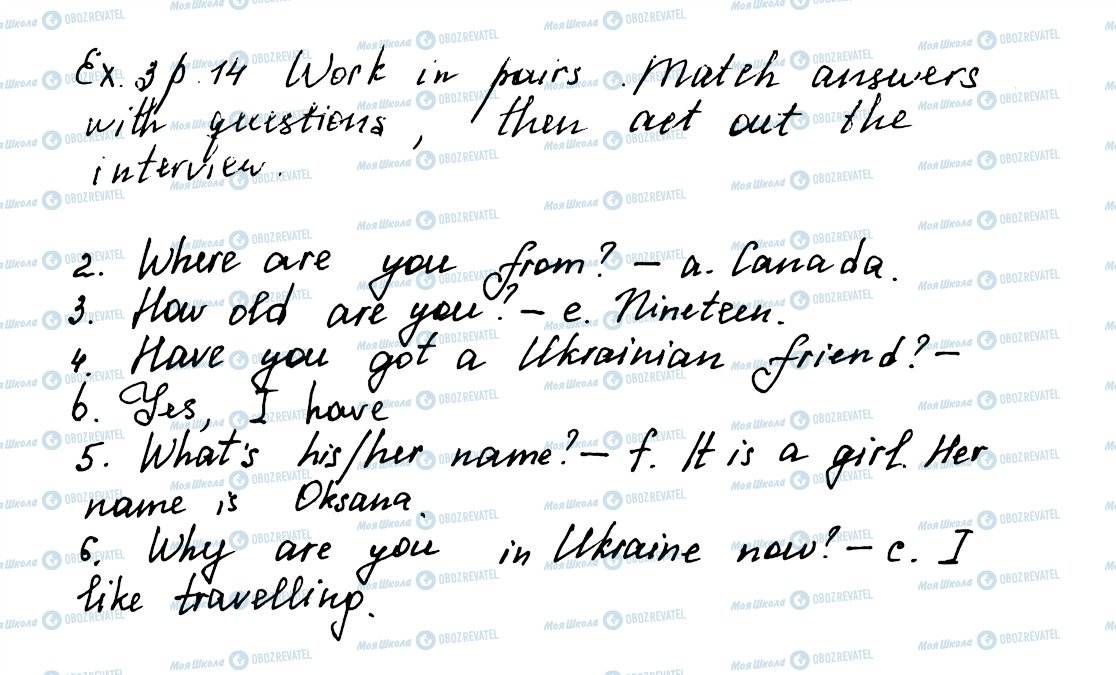 Ex. 3 p. 14 Work in pairs. Match answers
with questions, then act out the
interview.
2. Where are you from? – a. Canada.
3. How old are you? – e. Nineteen.
4. Have you got a Ukrainian friend? –
b. Yes, I have
5. What's his/her name? – f. It is a girl. Her
name is Oksana.
6. Why are you in Ukraine now? – c. I
like travelling.